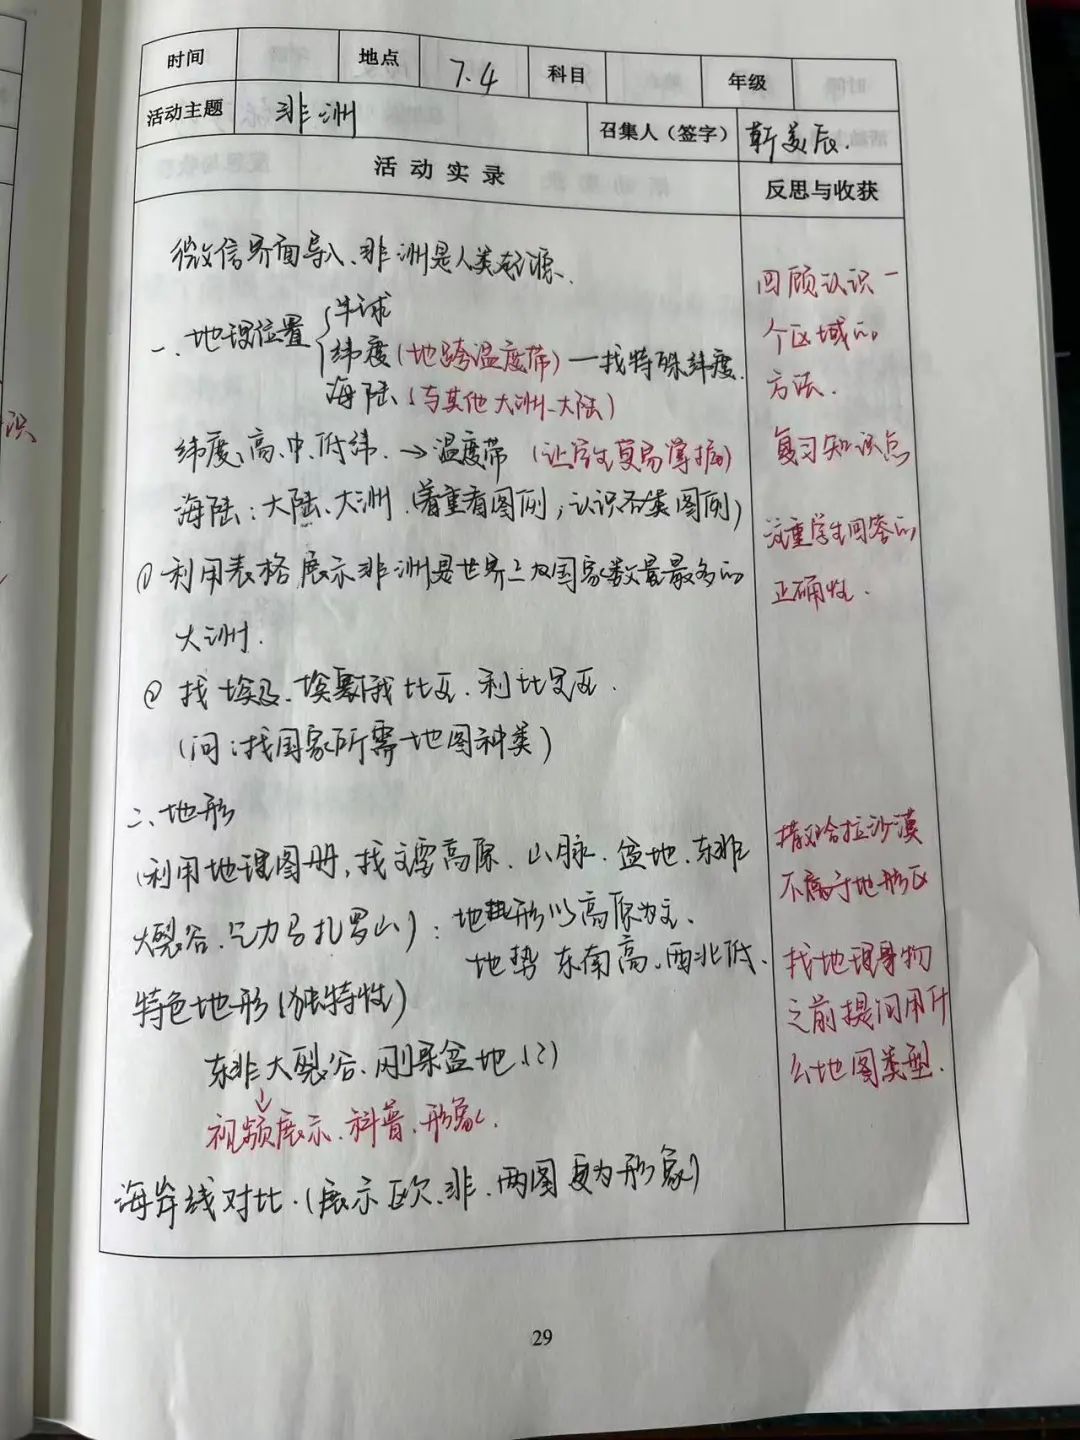 时间 地点 7.4 科目 年级
活动主题 非洲 召集人（签字） 靳美辰.
活动实录 反思与收获
微信界面导入、非洲是人类起源、
一、地理位置
半球
纬度（地跨温度带）—找特殊纬度.
海陆（与其他大洲、大陆）
纬度、高、中、低纬.→温度带（让学生更易掌握）
海陆：大陆、大洲.（着重看图例，认识各类图例）
① 利用表格展示非洲是世界上国家数量最多的
大洲.
② 找埃及、埃塞俄比亚、利比里亚.
（问：找国家所需地图种类）
二、地形
（利用地理图册，找主要高原、山脉、盆地、东非
大裂谷、乞力马扎罗山）：地形以高原为主.
地势东南高、西北低.
特色地形（独特性）
东非大裂谷、刚果盆地（2）
↓
视频展示、科普、形象.
海岸线对比.（展示欧、非、两图更为形象）
回顾认识一
个区域的
方法.
复习知识点
注重学生回答的
正确性.
撒哈拉沙漠
不属于地形区
找地理事物
之前提问用什
么地图类型.
29
识